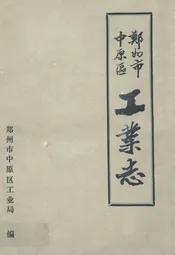 鄭州市
中原區
工業志
郑州市中原区工业局 编